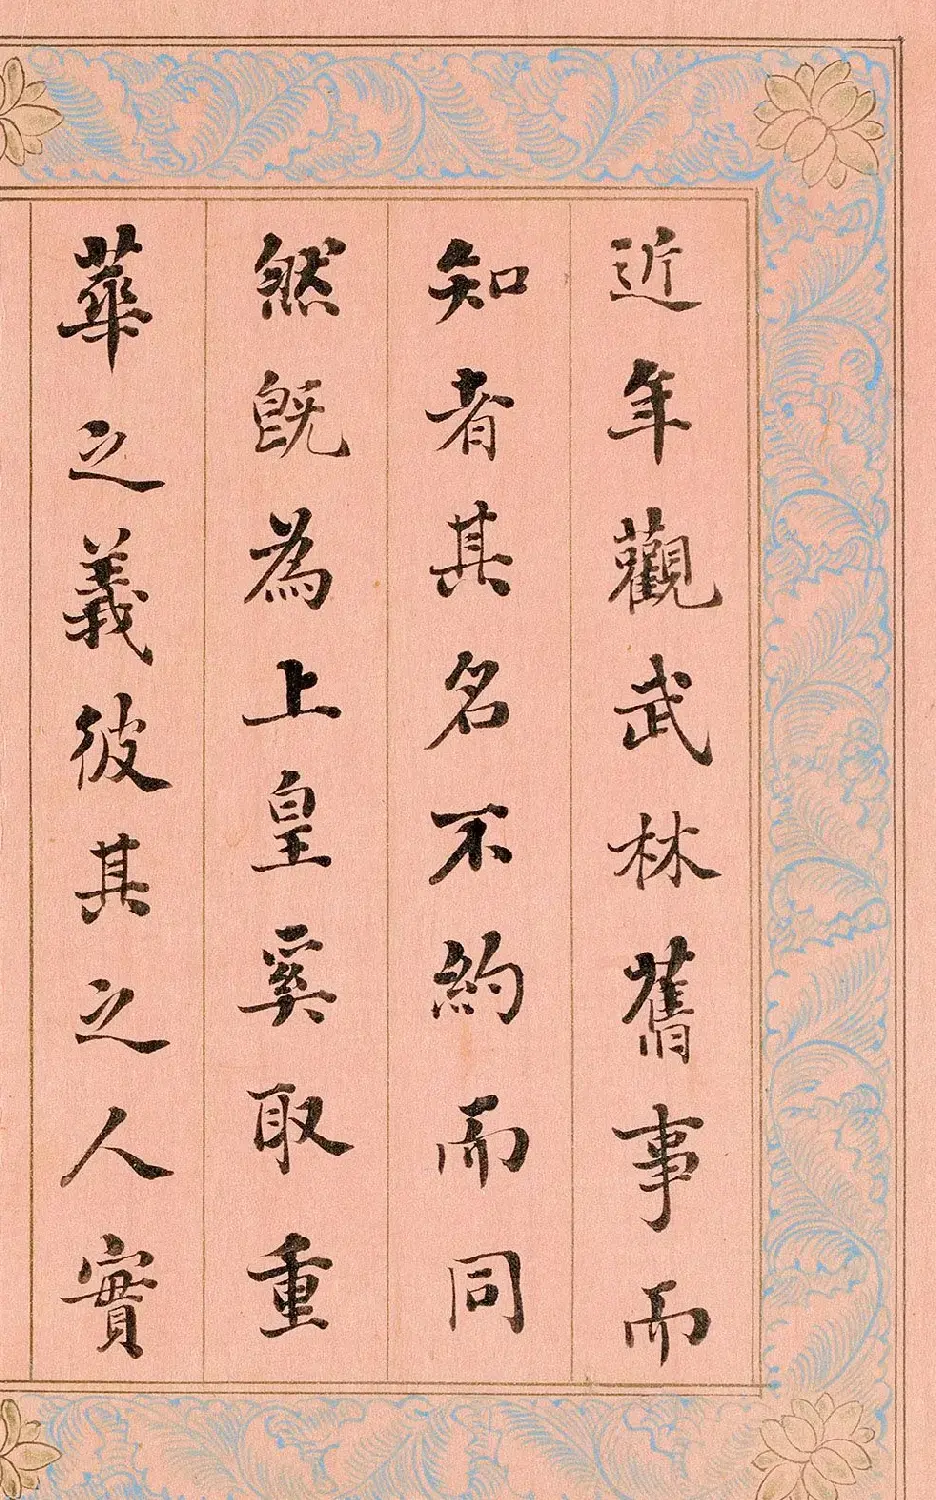 近年觀武林舊事而
知者其名不約而同
然既為上皇奚取重
華之義彼其之人實